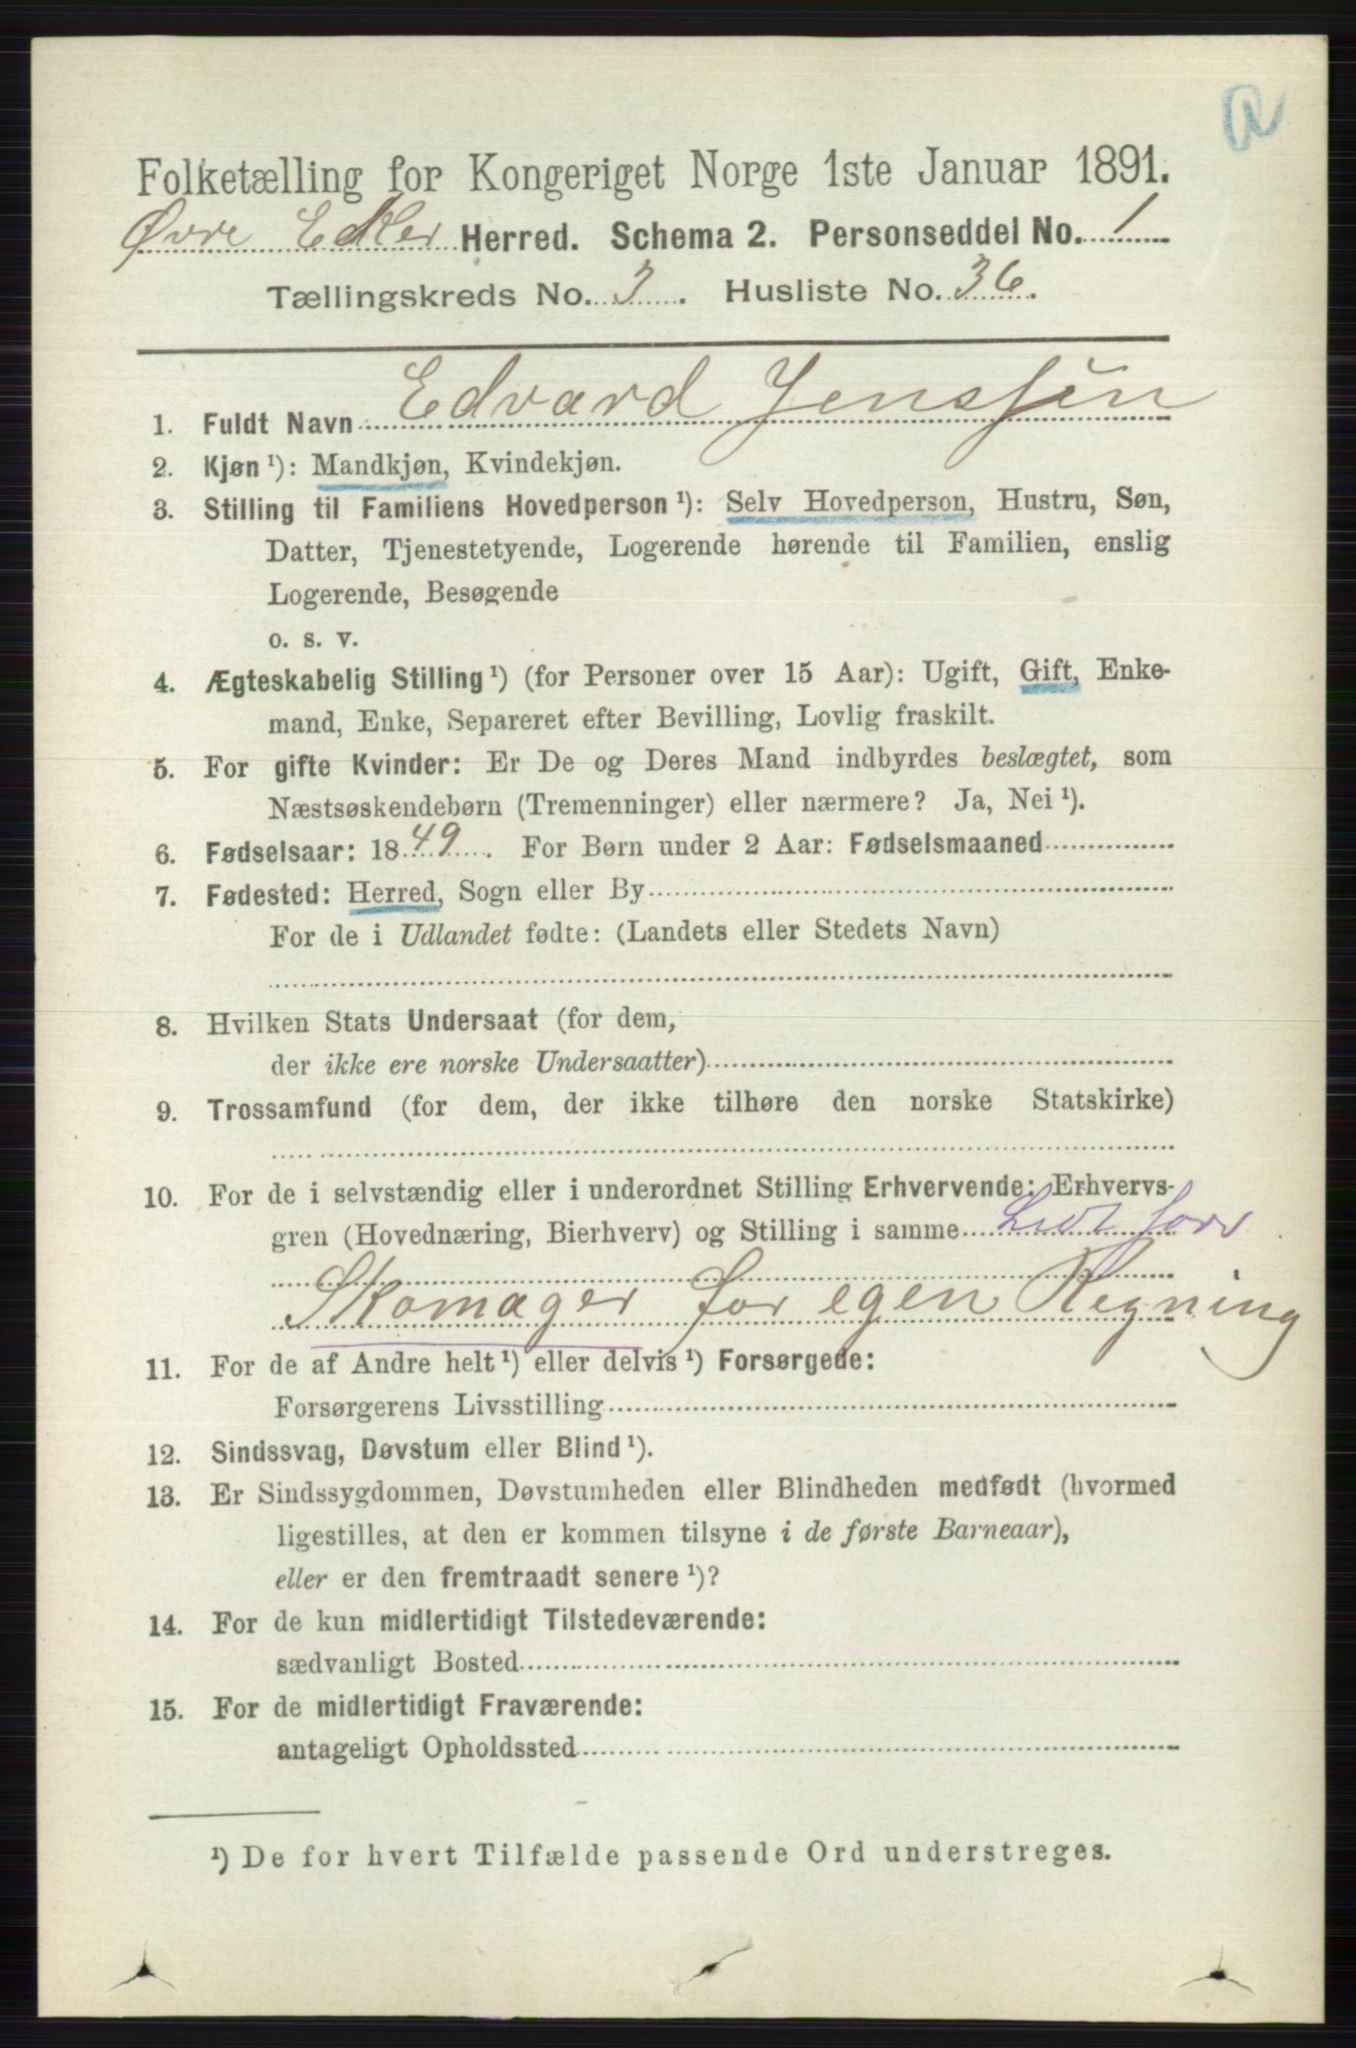 a
Folketælling for Kongeriget Norge 1ste Januar 1891.
Øvre Eker Herred. Schema 2. Personseddel No. 1
Tællingskreds No. 3. Husliste No. 36.
1. Fuldt Navn Edvard Jenssen
2. Kjøn¹): Mandkjøn, Kvindekjøn.
3. Stilling til Familiens Hovedperson¹): Selv Hovedperson, Hustru, Søn,
Datter, Tjenestetyende, Logerende hørende til Familien, enslig
Logerende, Besøgende
o. s. v.
4. Ægteskabelig Stilling¹) (for Personer over 15 Aar): Ugift, Gift, Enke-
mand, Enke, Separeret efter Bevilling, Lovlig fraskilt.
5. For gifte Kvinder: Er De og Deres Mand indbyrdes beslægtet, som
Næstsøskendebørn (Tremenninger) eller nærmere? Ja, Nei¹).
6. Fødselsaar: 1849. For Børn under 2 Aar: Fødselsmaaned
7. Fødested: Herred, Sogn eller By
For de i Udlandet fødte: (Landets eller Stedets Navn)
8. Hvilken Stats Undersaat (for dem,
der ikke ere norske Undersaatter)
9. Trossamfund (for dem, der ikke tilhøre den norske Statskirke)
10. For de i selvstændig eller i underordnet Stilling Erhvervende: Erhvervs-
gren (Hovednæring, Bierhverv) og Stilling i samme Lidt Jord
Skomager for egen Regning
11. For de af Andre helt¹) eller delvis¹) Forsørgede:
Forsørgerens Livsstilling
12. Sindssvag, Døvstum eller Blind¹).
13. Er Sindssygdommen, Døvstumheden eller Blindheden medfødt (hvormed
ligestilles, at den er kommen tilsyne i de første Barneaar),
eller er den fremtraadt senere¹)?
14. For de kun midlertidigt Tilstedeværende:
sædvanligt Bosted
15. For de midlertidigt Fraværende:
antageligt Opholdssted
¹) De for hvert Tilfælde passende Ord understreges.